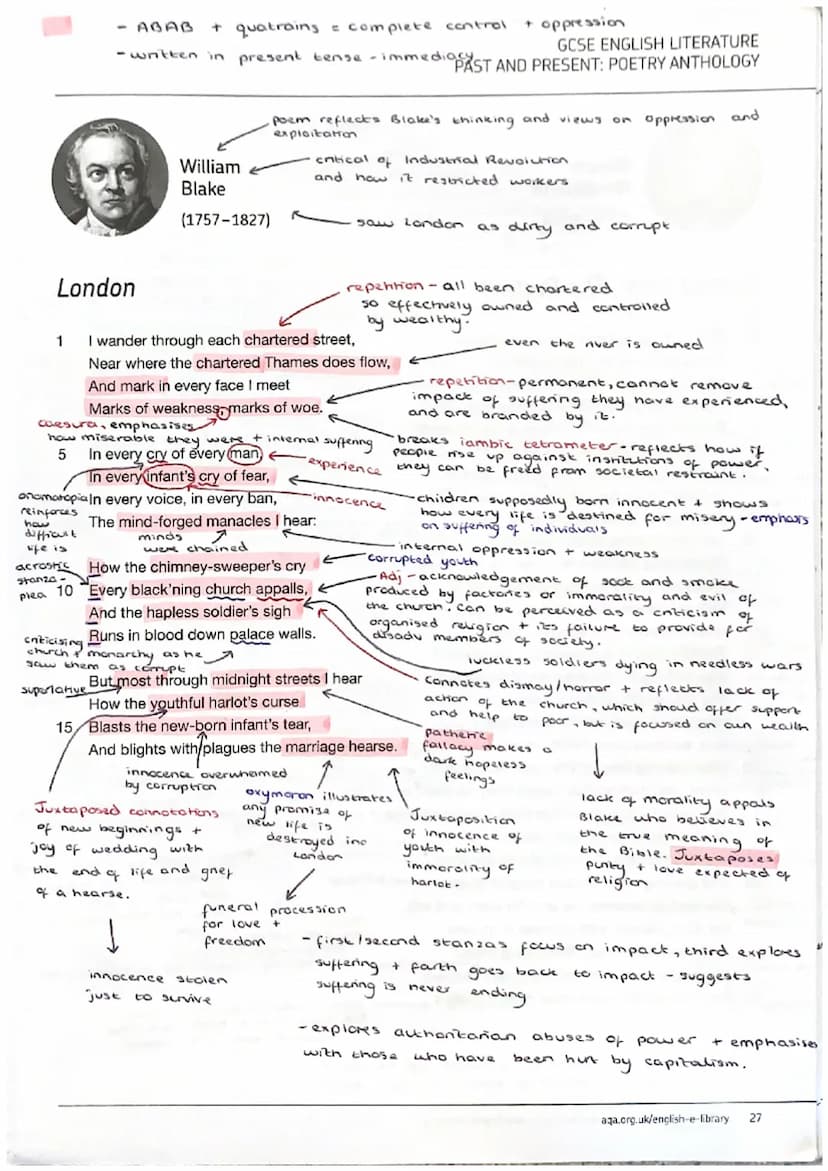 - ABAB + quatrains = complete control + oppression
- written in present tense - immediacy
GCSE ENGLISH LITERATURE
PAST AND PRESENT: POETRY ANTHOLOGY
poem reflects Blake's thinking and views on oppression and
exploitation
William
Blake
(1757–1827)
critical of Industrial Revolution
and how it restricted workers
saw London as dirty and corrupt
London
repetition - all been chartered
so effectively owned and controlled
by wealthy.
1 I wander through each chartered street,
even the river is owned
Near where the chartered Thames does flow,
And mark in every face I meet
Marks of weakness, marks of woe.
repetition - permanent, cannot remove
impact of suffering they have experienced,
and are branded by it.
caesura, emphasises
how miserable they were + internal suffering
breaks iambic tetrameter - reflects how if
people rise up against institutions of power,
they can be freed from societal restraint.
5 In every cry of every man,
experience
In every infant's cry of fear,
In every voice, in every ban,
innocence
The mind-forged manacles I hear:
onomatopia
reinforces
how
difficult
life is
minds
were chained
children supposedly born innocent + shows
how every life is destined for misery - emphasis
on suffering of individuals
internal oppression + weakness
acrostic
stanza -
plea
How the chimney-sweeper's cry
corrupted youth
10 Every black'ning church appalls,
And the hapless soldier's sigh
Runs in blood down palace walls.
Adj - acknowledgement of soot and smoke
produced by factories or immorality and evil of
the church. Can be perceived as a criticism of
organised religion + its failure to provide for
disadv members of society.
criticising
church + monarchy as he
saw them as corrupt
luckless soldiers dying in needless wars
superlative
But most through midnight streets I hear
How the youthful harlot's curse
15 Blasts the new-born infant's tear,
And blights with plagues the marriage hearse.
connotes dismay/horror + reflects lack of
action of the church, which should offer support
and help to poor, but is focused on own wealth
pathetic
fallacy makes a
dark hopeless
feelings
innocence overwhelmed
by corruption
Juxtaposed connotations
of new beginnings +
joy of wedding with
the end of life and grief
of a hearse.
oxymoron illustrates
any promise of
new life is
destroyed inc
London
Juxtaposition
of innocence of
youth with
immorality of
harlot.
lack of morality appals
Blake who believes in
the true meaning of
the Bible. Juxtaposes
purity + love expected of
religion
funeral procession
for love +
freedom
innocence stolen
just to survive
- first/second stanzas focus on impact, third explores
suffering + forth goes back to impact - suggests
suffering is never ending
- explores authoritarian abuses of power + emphasise
with those who have been hurt by capitalism.
aqa.org.uk/english-e-library 27